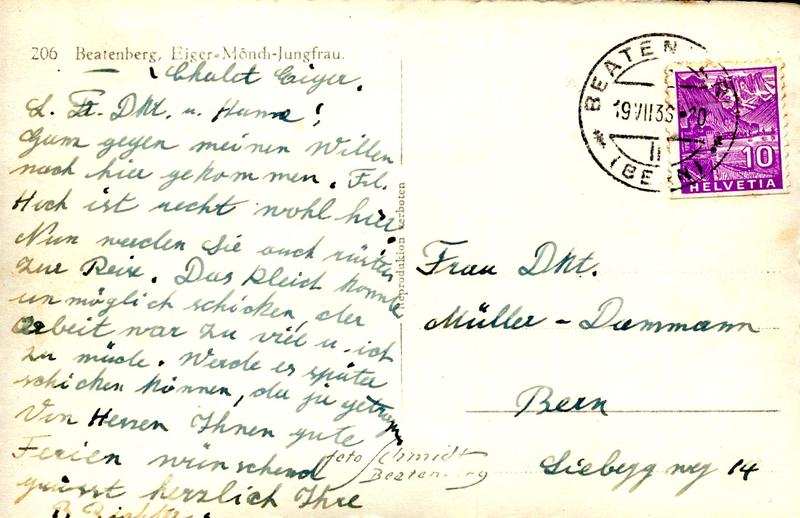 206 Beatenberg, Eiger-Mönch-Jungfrau.
Chalet Eiger.
L. Fr. Dkt. u. Hans!
Ganz gegen meinen Willen
nach hier gekommen. Frl.
Hoch ist recht wohl hier.
Nun werden Sie auch rüsten
zur Reise. Das Kleid konnte
unmöglich schicken der
Arbeit war zu viel u. ich
zu müde. Werde es später
schicken können, da ja
Von Herzen Ihnen gute
Ferien wünschend
grüsst herzlich Ihre
Reproduktion verboten
foto Schmidt
Beatenberg
BEATENBERG
19 VII 36 - 20
(BERN)
10
HELVETIA
Frau Dkt.
Müller - Dammann
Bern
Liebegg weg 14